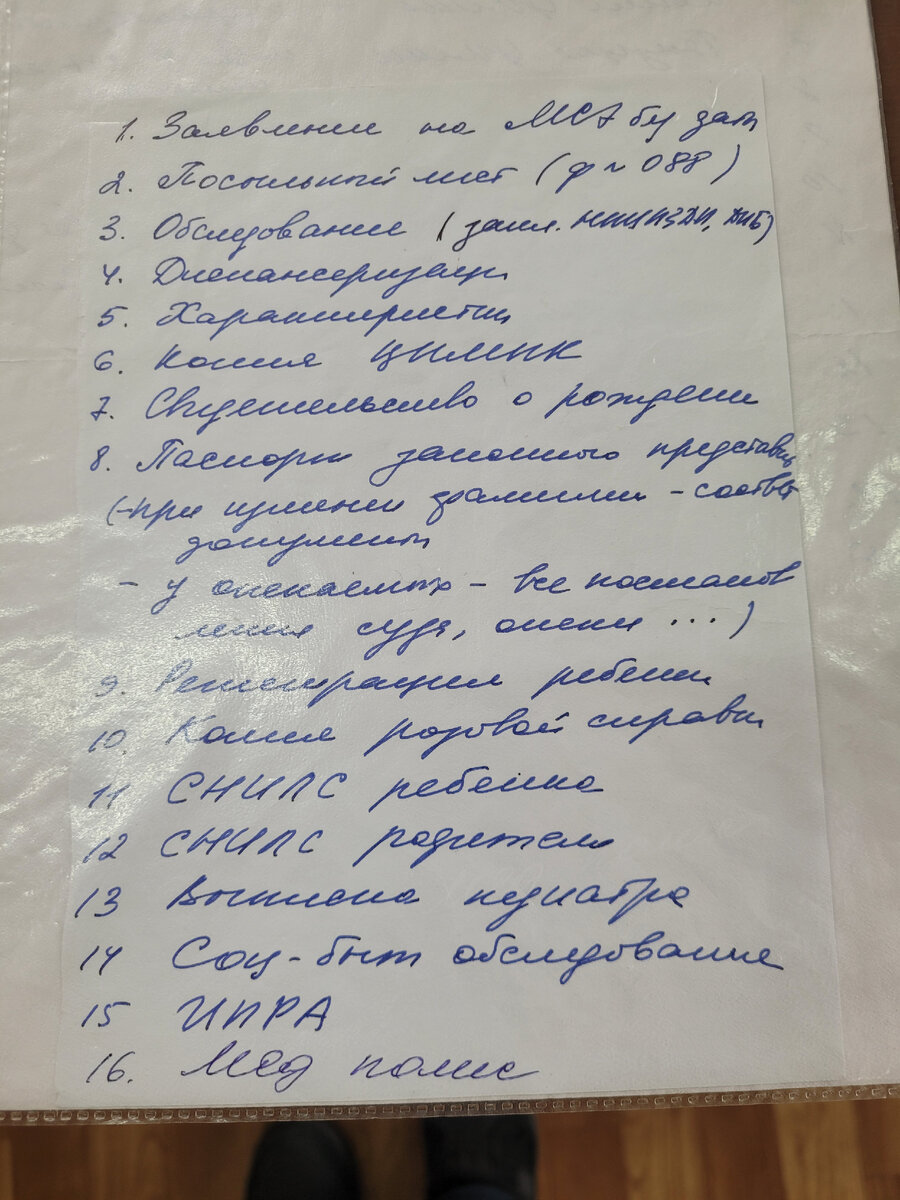 1. Заявление на МСЭ
2. Посыльный лист (ф ~ 088)
3. Обследование (закл.
4. Диспансеризаци
5. Характеристи
6. Копия ЦПМПК
7. Свидетельство о рождени
8. Паспорт законного представ
(-при измении фамилии - соотв
документ
- у опекаемых - все постанов
ления суда, опеки ...)
9. Регистрация ребенк
10. Копия розовой справки
11 СНИЛС ребенка
12 СНИЛС родителя
13 Выписка педиатра
14 Соц-быт обследование
15 ИПРА
16. Мед полис